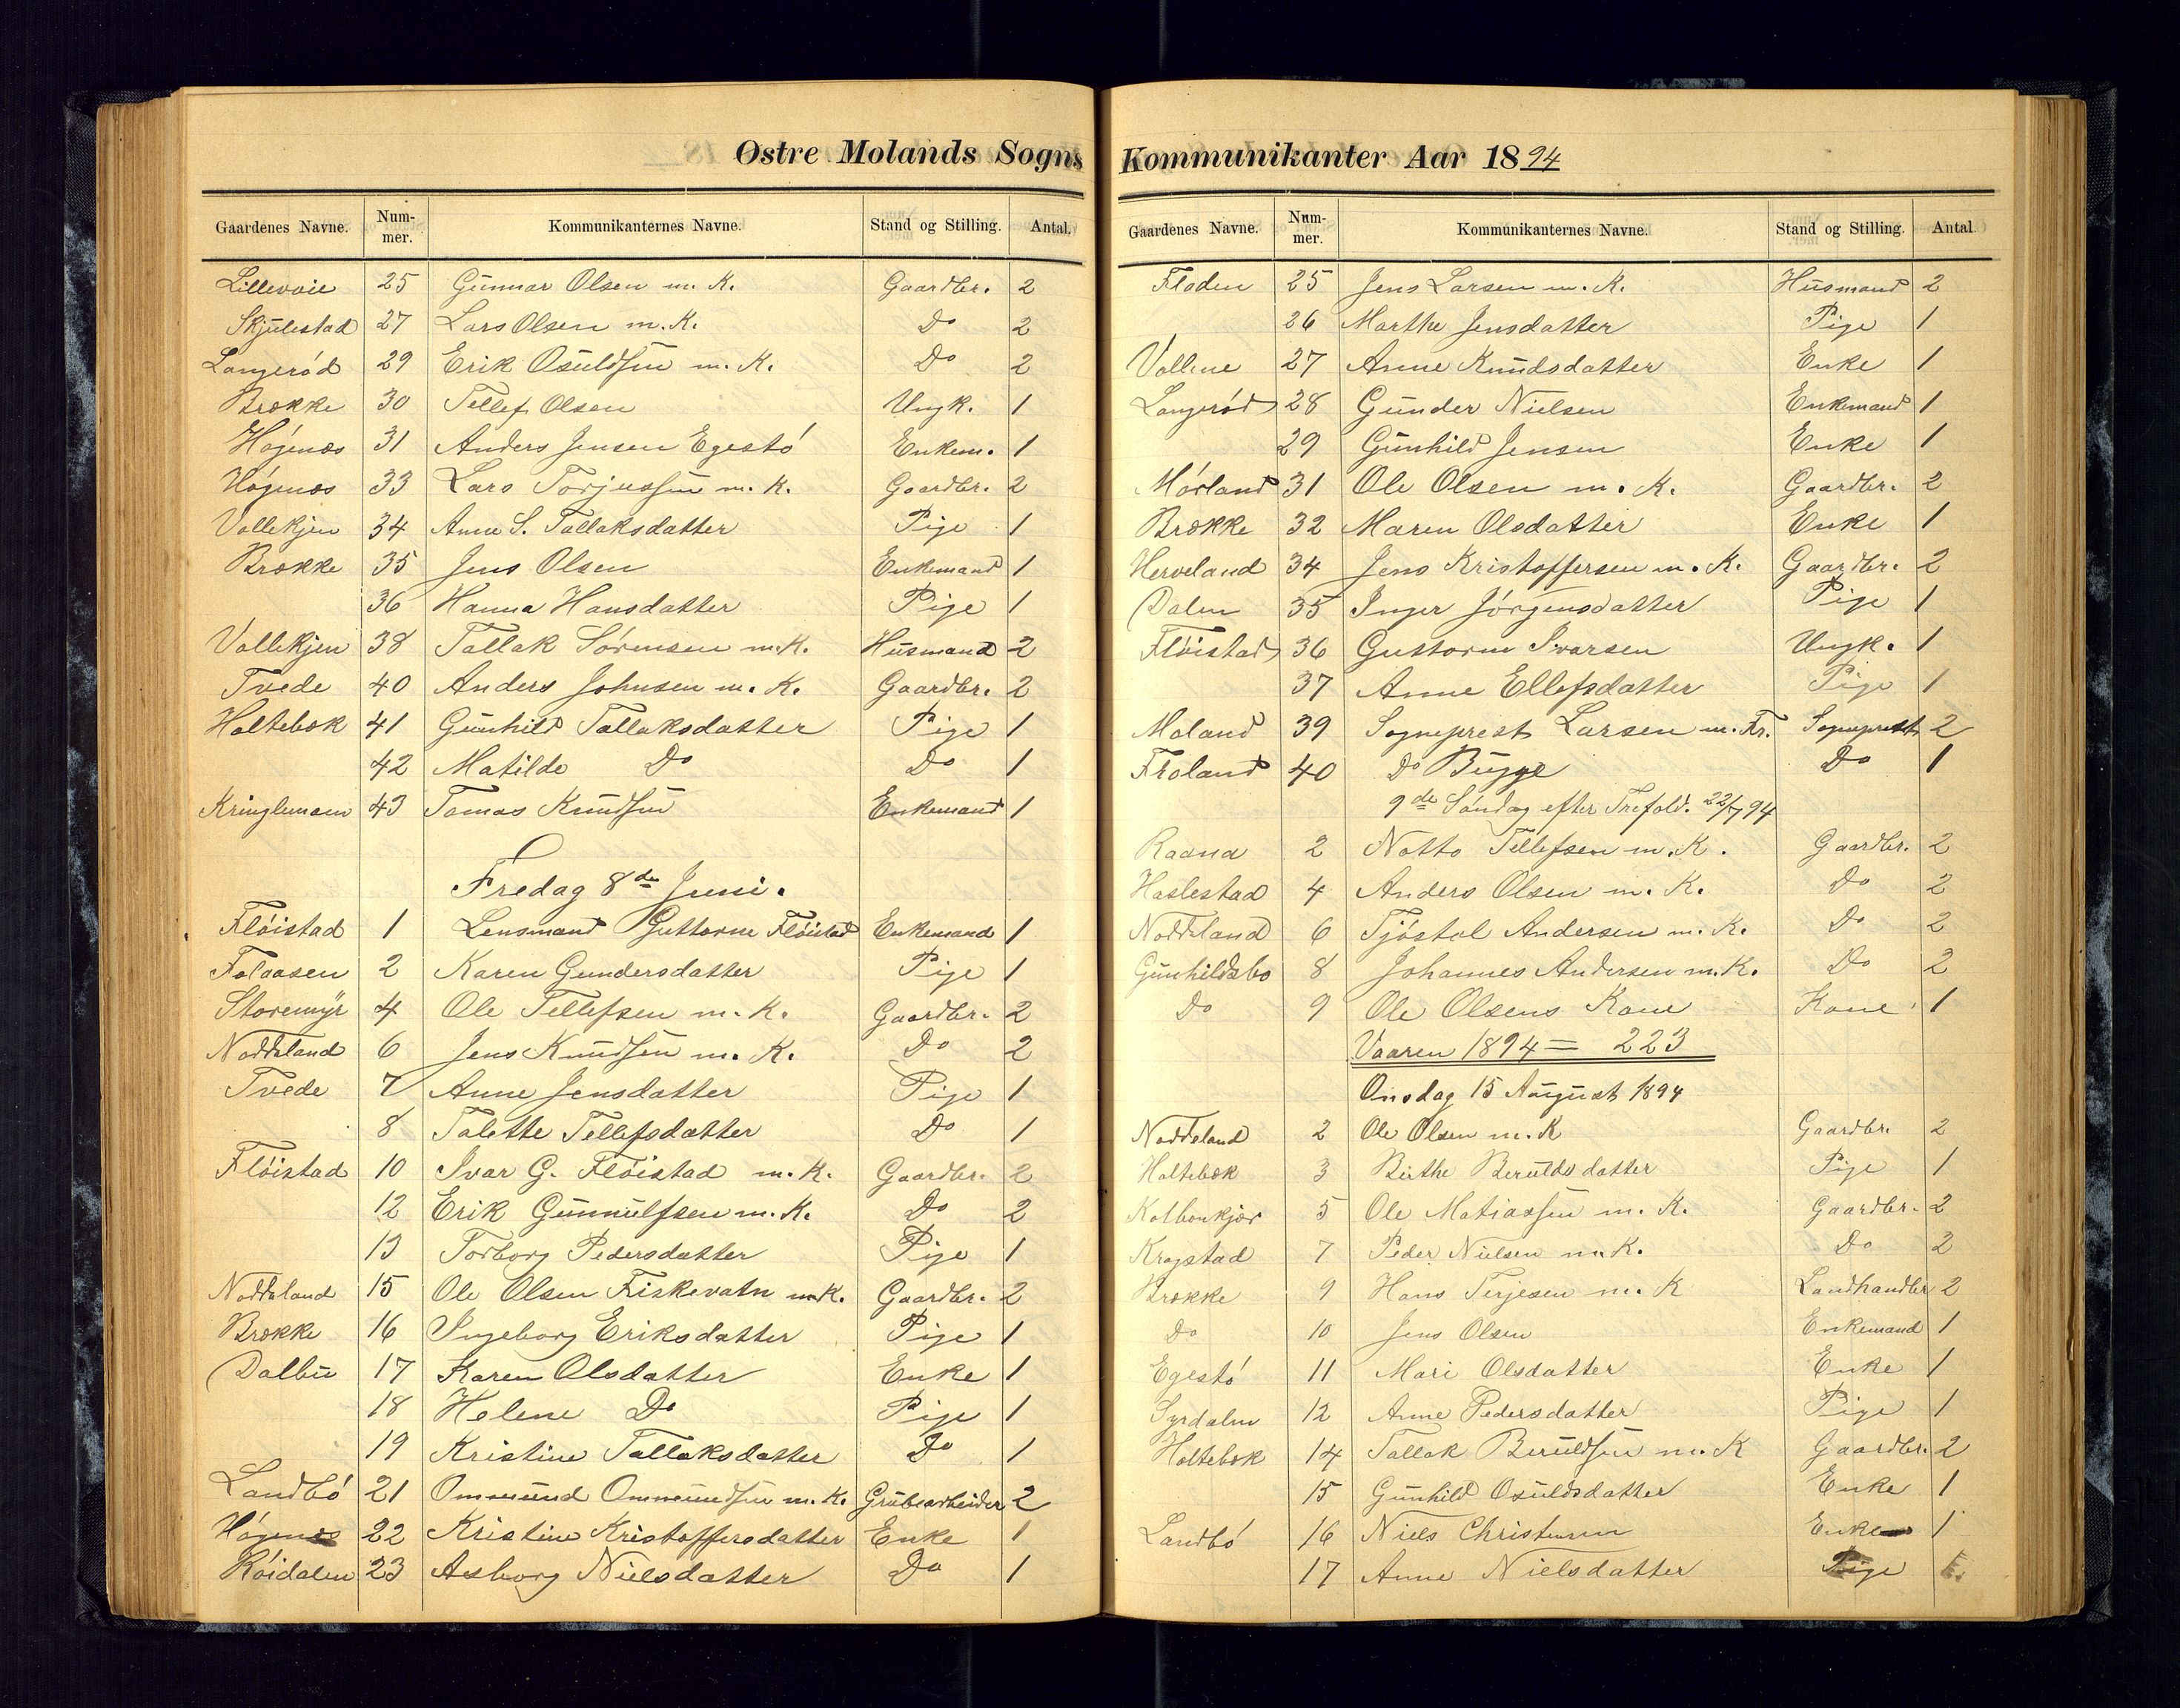 Østre Molands Sogns
Gaardenes Navne. Num-mer. Kommunikanternes Navne. Stand og Stilling. Antal.
Lillevoie 25 Gunnar Olsen m. K. Gaardbr. 2
Skjulestad 27 Lars Olsen m. K. Do 2
Langerød 29 Erik Osuldsen m. K. Do 2
Brække 30 Tellef Olsen Ungk. 1
Høgenæs 31 Anders Jensen Egestø Enkem. 1
Høgenæs 33 Lars Torjussen m. K. Gaardbr. 2
Vallekjen 34 Anne S. Tallaksdatter Pige 1
Brække 35 Jens Olsen Enkemand 1
36 Hanna Hansdatter Pige 1
Vallekjen 38 Tallak Sørensen m. K. Husmand 2
Tvede 40 Anders Johnsen m. K. Gaardbr. 2
Holtebæk 41 Gunhild Tallaksdatter Pige 1
42 Matilde Do Do 1
Kringlemoen 43 Tomas Knudsen Enkemand 1
Fredag 8de Juni.
Fløistad 1 Lensmand Guttorm Fløistad Enkemand 1
Folaasen 2 Karen Gundersdatter Pige 1
Storemyr 4 Ole Tellefsen m. K. Gaardbr. 2
Noddeland 6 Jens Knudsen m. K. Do 2
Tvede 7 Anne Jensdatter Pige 1
8 Talette Tellefsdatter Do 1
Fløistad 10 Ivar G. Fløistad m. K. Gaardbr. 2
12 Erik Gunnulfsen m. K. Do 2
13 Torborg Pedersdatter Pige 1
Noddeland 15 Ole Olsen Fiskevatn m. K. Gaardbr. 2
Brække 16 Ingeborg Eriksdatter Pige 1
Dalbu 17 Karen Olsdatter Enke 1
18 Helene Do Pige 1
19 Kristine Tallaksdatter Do 1
Landbø 21 Ommund Ommundsen m. K. Grubearbeider 2
Høgenæs 22 Kristine Kristoffersdatter Enke 1
Røidalen 23 Asborg Nielsdatter Do 1
Kommunikanter Aar 1894
Gaardenes Navne. Num-mer. Kommunikanternes Navne. Stand og Stilling. Antal
Floden 25 Jens Larsen m. K. Husmand 2
26 Marthe Jensdatter Pige 1
Vollene 27 Anne Knudsdatter Enke 1
Langerød 28 Gunder Nielsen Enkemand 1
29 Gunhild Jensen Enke 1
Mørland 31 Ole Olsen m. K. Gaardbr. 2
Brække 32 Maren Olsdatter Enke 1
Herveland 34 Jens Kristoffersen m. K. Gaardbr. 2
Dalen 35 Inger Jørgensdatter Pige 1
Fløistad 36 Guttorm Ivarsen Ungk. 1
37 Anne Ellefsdatter Pige 1
Moland 39 Sogneprest Larsen m. Fr. Sogneprest 2
Froland 40 Do Bugge Do 1
9de Søndag efter Trefold. 22/7 94
Raana 2 Notto Tellefsen m. K. Gaardbr. 2
Haslestad 4 Anders Olsen m. K. Do 2
Noddeland 6 Tjøstol Andersen m. K. Do 2
Gunhildsbo 8 Johannes Andersen m. K. Do 2
Do 9 Ole Olsens Kone Kone 1
Vaaren 1894 = 223
Onsdag 15 August 1894
Noddeland 2 Ole Olsen m. K Gaardbr. 2
Holtebæk 3 Birthe Beruldsdatter Pige 1
Kolbonkjær 5 Ole Matiassen m. K. Gaardbr. 2
Krogstad 7 Peder Nielsen m. K. Do 2
Brække 9 Hans Terjesen m. K Landhandler 2
Do 10 Jens Olsen Enkemand 1
Egestø 11 Mari Olsdatter Enke 1
Syrdalen 12 Anne Pedersdatter Pige 1
Holtebæk 14 Tallak Beruldsen m. K Gaardbr. 2
15 Gunhild Osuldsdatter Enke 1
Landbø 16 Niels Christensen Enkem 1
17 Anne Nielsdatter Pige 1